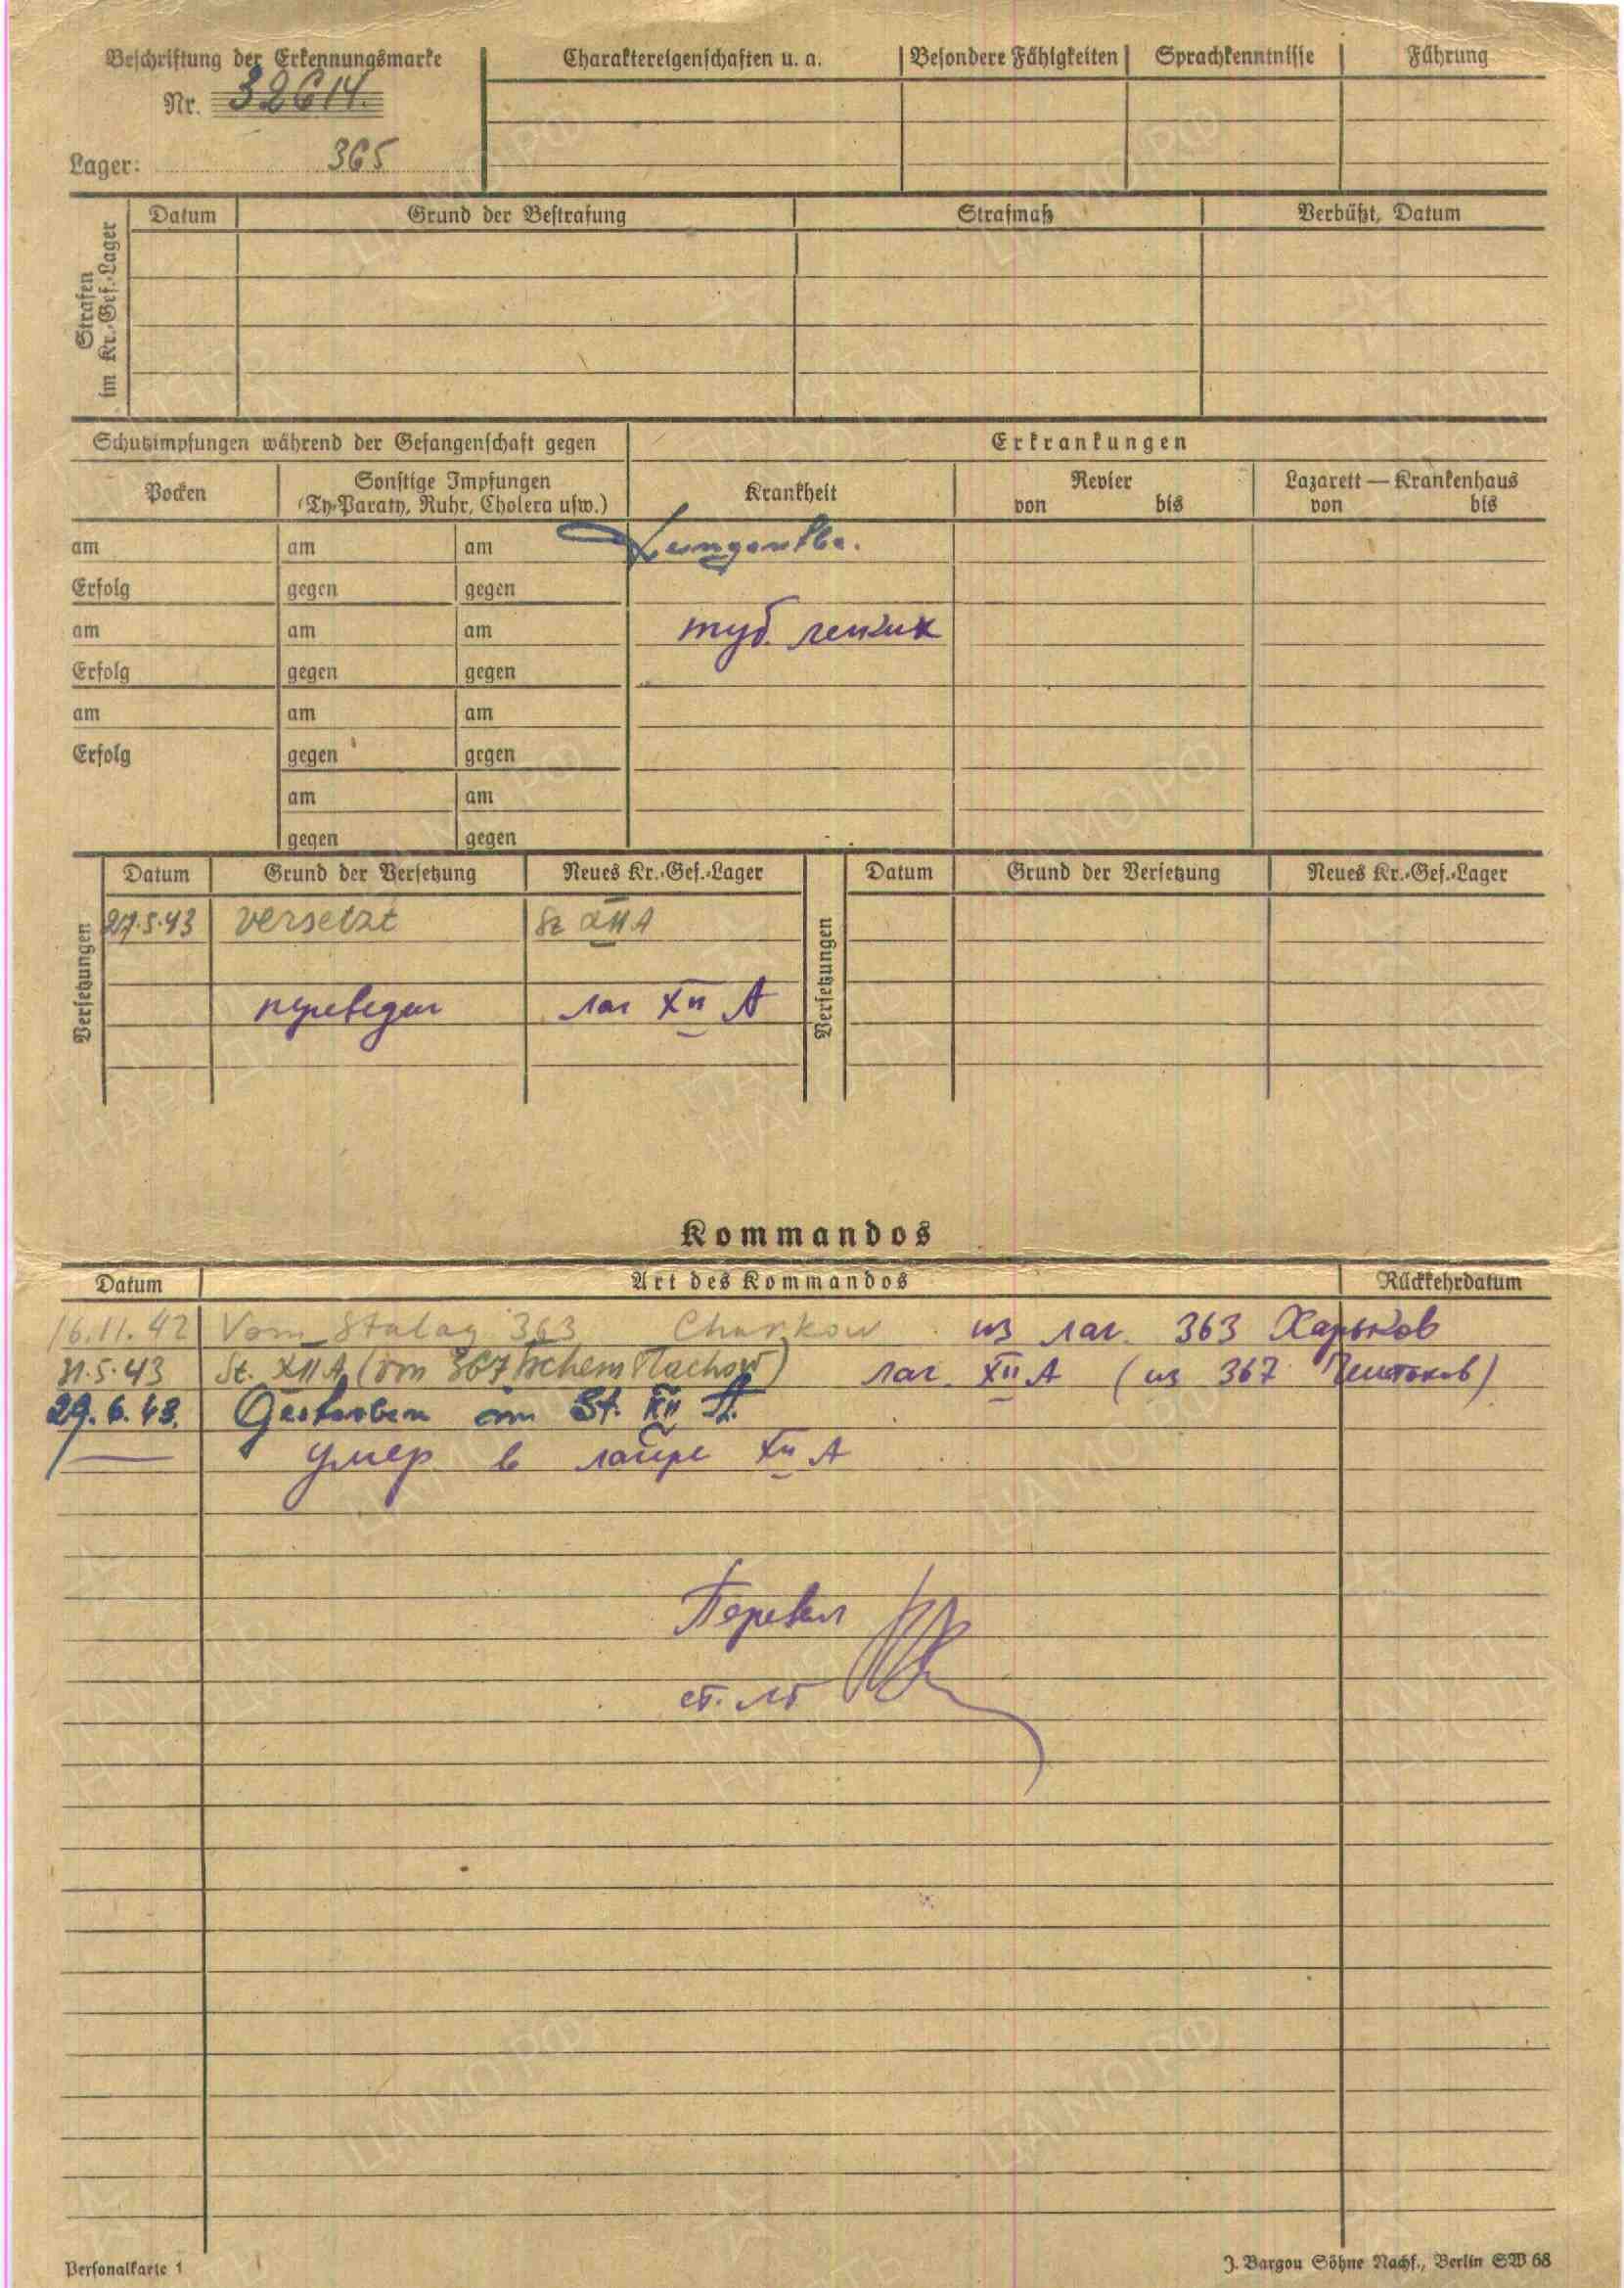 Beschriftung der Erkennungsmarke
Nr. 32614.
Lager: 365
Charaktereigenschaften u. a. Besondere Fähigkeiten Sprachkenntnisse Führung
Strafen
im Kr.-Gef.-Lager
Datum Grund der Bestrafung Strafmaß Verbüßt, Datum
Schutzimpfungen während der Gefangenschaft gegen
Erkrankungen
Pocken
Sonstige Impfungen
(Ty-Paraty, Ruhr, Cholera usw.)
Krankheit
Revier
von bis
Lazarett — Krankenhaus
von bis
am am am Lungentbc.
Erfolg gegen gegen
am am am туб. легких
Erfolg gegen gegen
am am am
Erfolg gegen gegen
am am
gegen gegen
Versetzungen
Datum Grund der Versetzung Neues Kr.-Gef.-Lager
27.5.43 versetzt St XII A
переведен лаг XII A
Versetzungen
Datum Grund der Versetzung Neues Kr.-Gef.-Lager
Kommandos
Datum Art des Kommandos Rückkehrdatum
16.11.42 Vom Stalag 363 Charkow из лаг. 363 Харьков
31.5.43 St. XII A (vom 367 Tschenstachow) лаг. XII A (из 367
29.6.43. Gestorben im St. XII A.
умер в лагере XII A
Перевел
ст. лт
Personalkarte 1
J. Bargou Söhne Nachf., Berlin SW 68
ЦАМО РФ
ПАМЯТЬ
НАРОДА